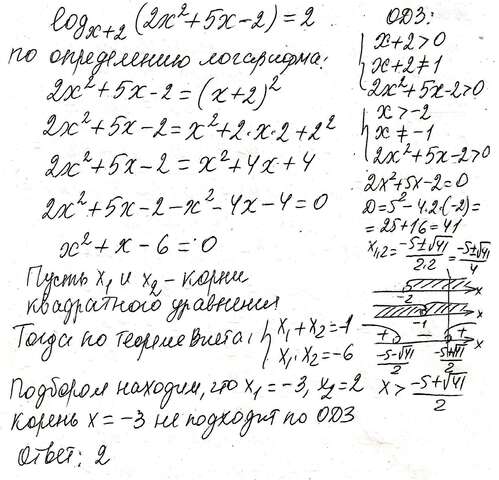 log_{x+2} (2x²+5x-2) = 2
по определению логарифма:
2x²+5x-2=(x+2)²
2x²+5x-2=x²+2·x·2+2²
2x²+5x-2=x²+4x+4
2x²+5x-2-x²-4x-4=0
x²+x-6=0
Пусть x₁ и x₂ - корни
квадратного уравнения
Тогда по теореме Виета: { x₁+x₂=-1
x₁·x₂=-6
Подбором находим, что x₁=-3, x₂=2
Корень x=-3 не подходит по ОДЗ
Ответ: 2
ОДЗ:
{ x+2>0
x+2≠1
2x²+5x-2>0
{ x>-2
x≠-1
2x²+5x-2>0
2x²+5x-2=0
D=5²-4·2·(-2)=
=25+16=41
x₁,₂=(-5±√41)/(2·2)=(-5±√41)/4
-2 x
-1 x
+ - + x
(-5-√41)/2 (-5+√41)/2
x>(-5+√41)/2